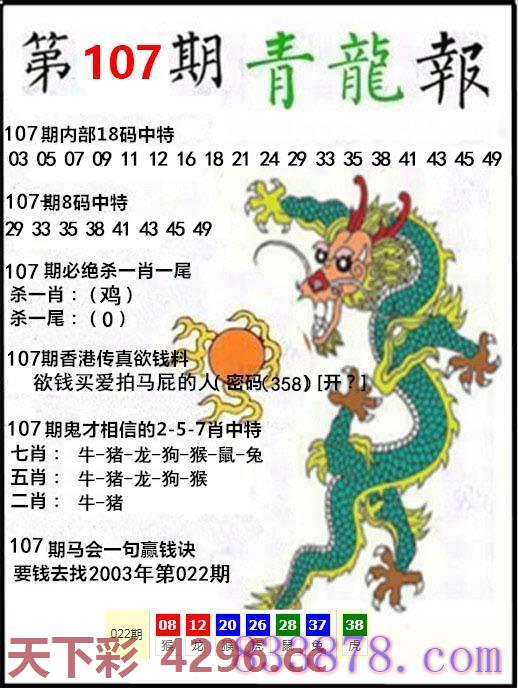 第107期 青龍報
107期内部18码中特
03 05 07 09 11 12 16 18 21 24 29 33 35 38 41 43 45 49
107期8码中特
29 33 35 38 41 43 45 49
107期必绝杀一肖一尾
杀一肖：（鸡）
杀一尾：（0）
107期香港传真欲钱料
欲钱买爱拍马屁的人(密码(358)[开？]
107期鬼才相信的2-5-7肖中特
七肖： 牛-猪-龙-狗-猴-鼠-兔
五肖： 牛-猪-龙-狗-猴
二肖： 牛-猪
107期马会一句赢钱诀
要钱去找2003年第022期
022期 08 12 20 26 28 37 38
猴 龙 猴 虎 鼠 兔 虎
天下彩 4296.cc
878.com